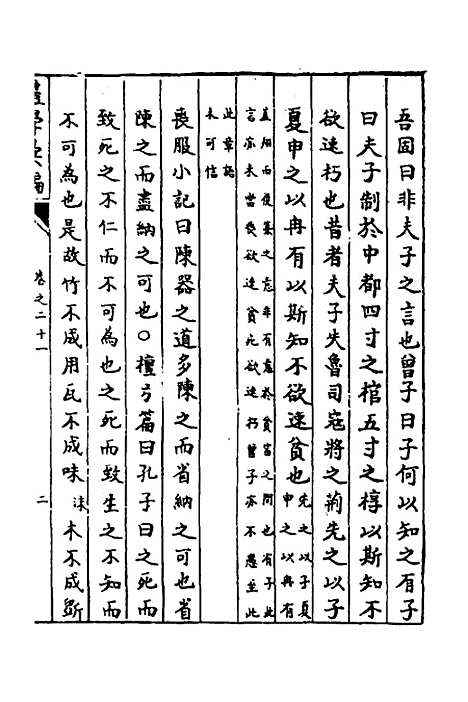 吾固曰非夫子之言也曾子曰子何以知之有子
曰夫子制於中都四寸之棺五寸之椁以斯知不
欲速朽也昔者夫子失魯司寇將之荊先之以子
夏申之以冉有以斯知不欲速貧也先之以子夏
申之以冉有
之意非有意於貧富之間也有子此
言亦未當喪欲速貧死欲速朽曾子亦不愚至此
此章
未可信
喪服小記曰陳器之道多陳之而省納之可也省
陳之而盡納之可也○檀弓篇曰孔子曰之死而
致死之不仁而不可為也之死而致生之不知而
不可為也是故竹不成用瓦不成味沬木不成斵
禮學彙編
卷之二十一
二